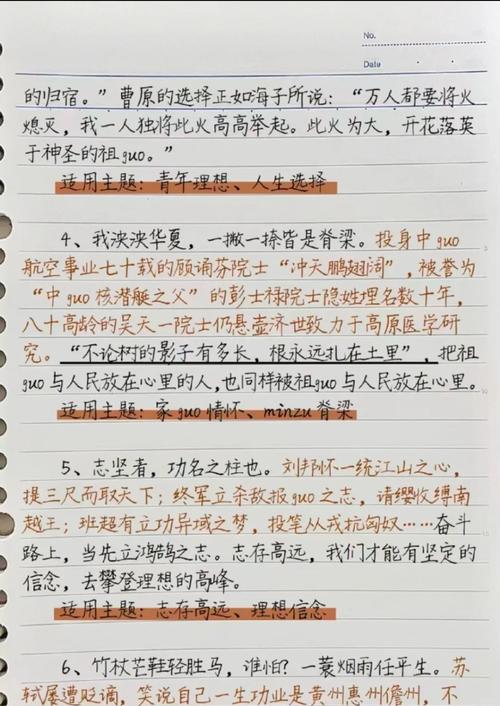 No.
Date
的归宿。”曹原的选择正如海子所说：“万人都要将火
熄灭，我一人独将此火高高举起。此火为大，开花落英
于神圣的祖guo。”
适用主题：青年理想、人生选择
4、我泱泱华夏，一撇一捺皆是脊梁。投身中guo
航空事业七十载的顾诵芬院士“冲天鹏翅阔”，被誉为
“中guo核潜艇之父”的彭士禄院士隐姓埋名数十年，
八十高龄的吴天一院士仍悬壶济世致力于高原医学研
究。“不论树的影子有多长，根永远扎在土里”，把祖
guo与人民放在心里的人，也同样被祖guo与人民放在心里。
适用主题：家guo情怀、minzu脊梁
5、志坚者，功名之柱也。刘邦怀一统江山之心，
提三尺而取天下；终军立杀敌报guo之志，请缨收缚南
越王；班超有立功异域之梦，投笔从戎抗匈奴……奋斗
路上，当先立鸿鹄之志。志存高远，我们才能有坚定的
信念，去攀登理想的高峰。
适用主题：志存高远、理想信念
6、竹杖芒鞋轻胜马，谁怕？一蓑烟雨任平生。苏
轼屡遭贬谪，笑说自己一生功业是黄州惠州儋州，不